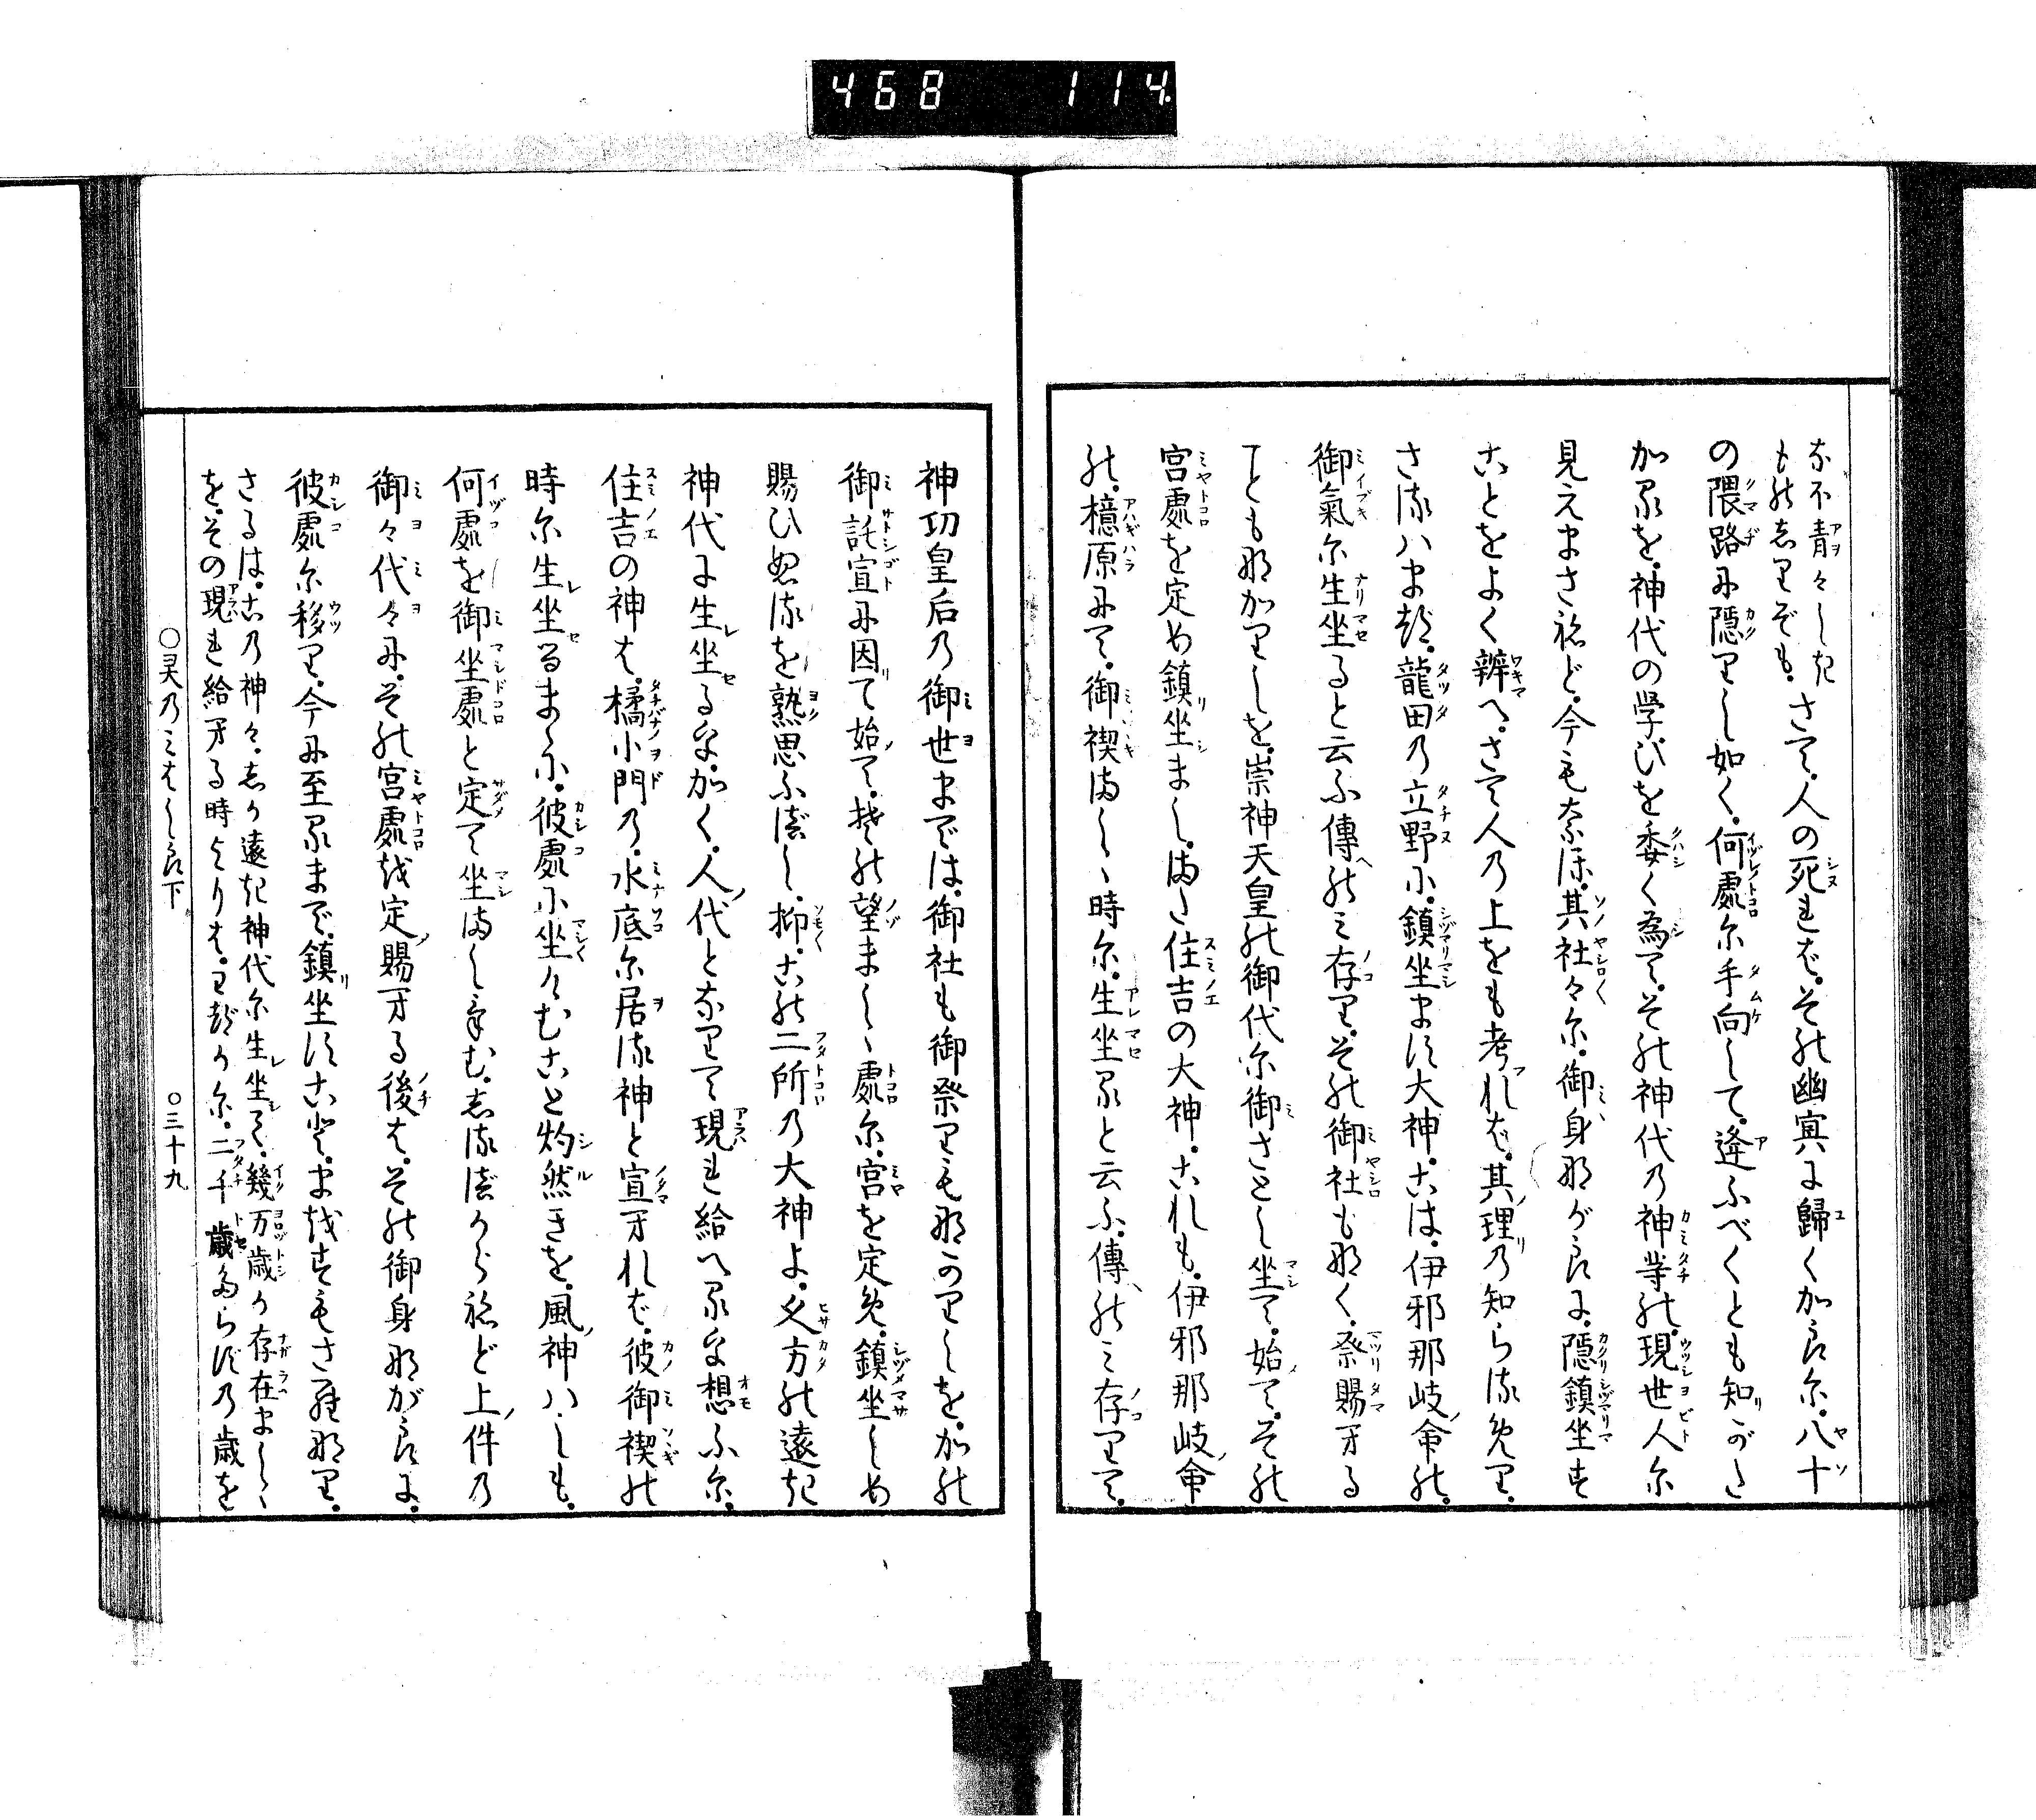 468 114
なふ青々しき
ものしりぞも。さて、人の死れば。その幽冥に歸くからに。八十
の隈路に隱りし如く。何處に手向して。逢ふべくとも知りがた
かるを。神代の学びを委く為て。その神代の神等の。現世人に
見えまさねど。今も奈ほ。其社々に。御身ながらに。隱鎮坐す
ことをよく辨へ。さて人の上をも考れば。其理の知らるめり。
さるハまづ。龍田の立野に。鎮坐ます大神。こは。伊邪那岐命の。
御氣に生坐ると云ふ傳のミ存り。その御社も那く。祭賜へる
ことも那かりしを。崇神天皇の御代に御さとし坐て。始て。その
宮處を定め鎮坐まし。また住吉の大神。これも。伊邪那岐命
の。檍原にて。御禊ましゝ時に。生坐ると云ふ。傳のミ存りて。
神功皇后の御世までは。御社も御祭りも那かりしを。かの
御託宣に因て始て。其の望ましゝ處に。宮を定め。鎮坐しめ
賜ひぬるを熟思ふべし。抑。この二所の大神よ。久方の遠き
神代に生坐るを。かく。人代となりて現れ給へるを想ふに。
住吉の神は。橘小門の。水底に居る神と宣へれば。彼御禊の
時に生坐るまゝに。彼處に坐々むこと灼然きを。風神ハしも。
何處を御坐處と定て坐ましけむ。しるべからねど上件の
御々代々に。その宮處を定賜へる後は。その御身ながらに。
彼處に移り。今に至るまで。鎮坐すこと。まをすもさら那り。
さるは。この神々。しか遠き神代に生坐て。幾万歳か存在ましゝ
を。その現れ給へる時よりは。わづかに。二千歳たらずの歳を
○灵乃みはしら下 ○三十九